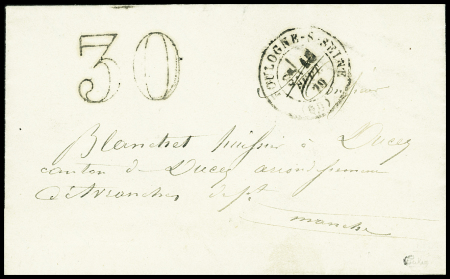 30
BOULOGNE-S-SEINE
SEPT
79
Monsieur
Blanchet huissier à Ducey
canton de Ducey arrondissement
d'Avranches dept
manche